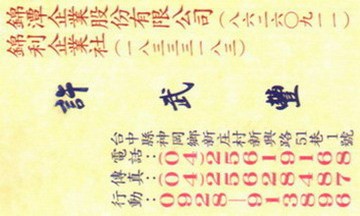 錦潭企業股份有限公司(八六二六〇九一一)
錦利企業社(一八三三三一八三)
許武豐
台中縣神岡鄉新庄村新興路51巷1號
電話:(04)25619168
傳真:(04)25628487
行動:0928-913896